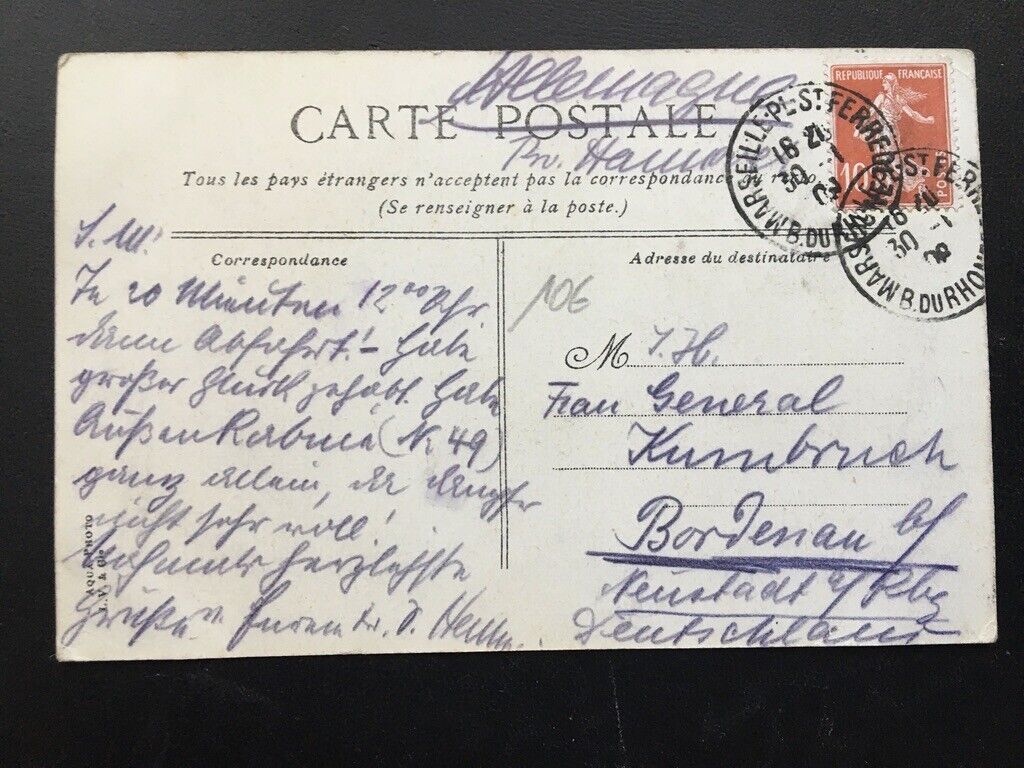 Allemagne
CARTE POSTALE
Prv. Hannover
Tous les pays étrangers n'acceptent pas la correspondance au recto.
(Se renseigner à la poste.)
REPUBLIQUE FRANÇAISE
10
POSTES
MARSEILLE·PL. ST FERREOL
16 20
30 -1
08
B. DU RHONE
ST FERRE
16 20
30 -1
08
MARS
B. DU RHONE
Correspondance
L. M!
In 20 Minuten 12 00 Uhr
dann Abfahrt! – Habe
großes Glück gehabt. Habe
Außenkabine (N. 49)
ganz allein, der Dampfer
nicht sehr voll!
Nochmals herzlichste
Grüße v. Eurem tr.
106
Adresse du destinataire
M I. H.
Frau General
Kumbruch
Bordenau b/
Neustadt a/ Rbg
Deutschland
AQUA PHOTO
L. V. & Cie